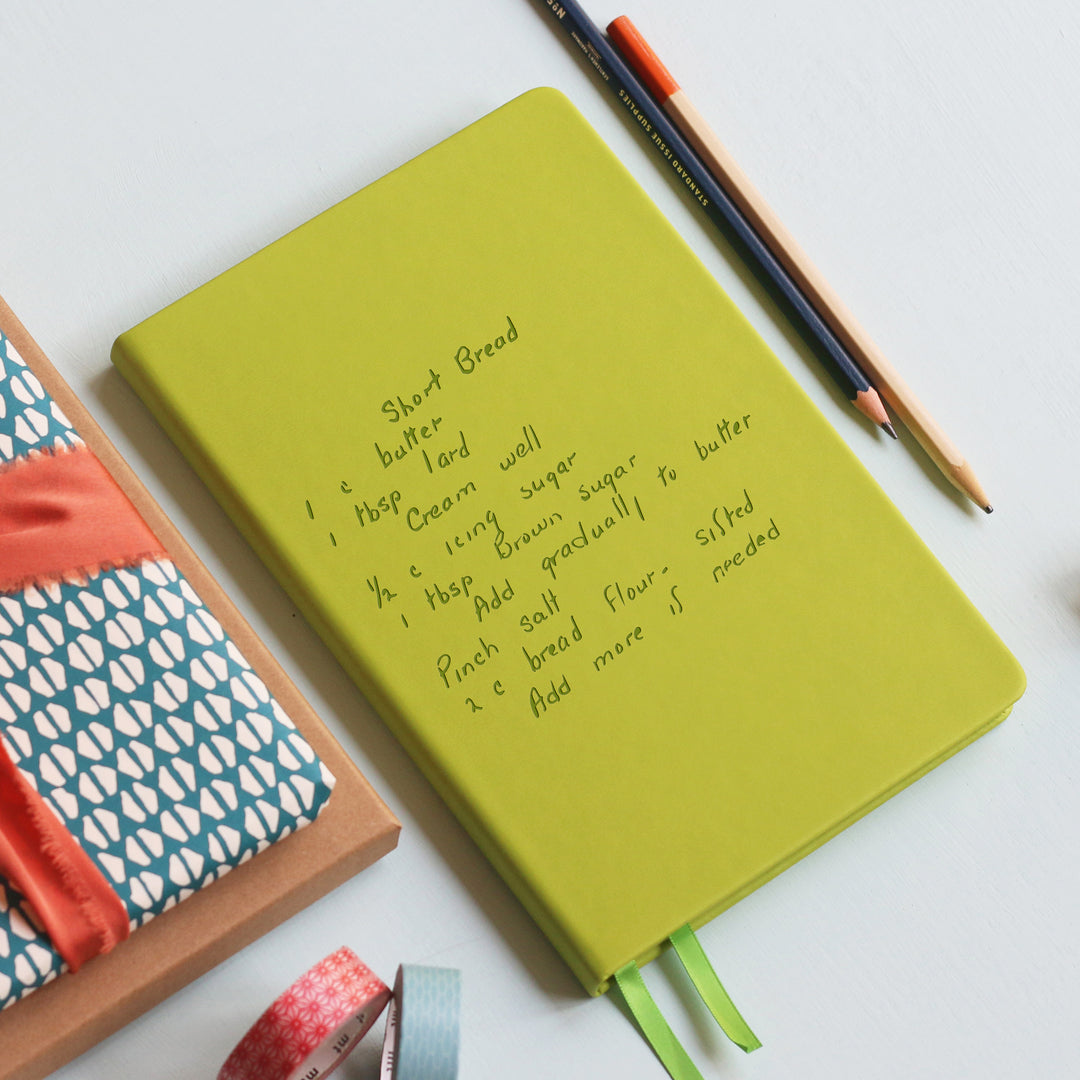 Short Bread
1 c butter
1 tbsp lard
Cream well
1/2 c icing sugar
1 tbsp Brown sugar
Add gradually to butter
Pinch salt
2 c bread flour - sifted
Add more if needed
STANDARD ISSUE SUPPLIES
mt
mt